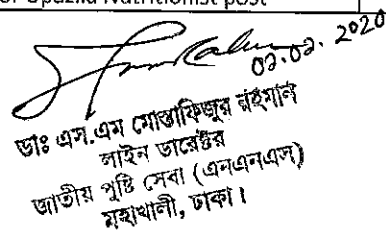 or Upazila Nutritionist post
০২.০২.২০২০
ডাঃ এস.এম মোস্তাফিজুর রহমান
লাইন ডাইরেক্টর
জাতীয় পুষ্টি সেবা (এনএনএস)
মহাখালী, ঢাকা।